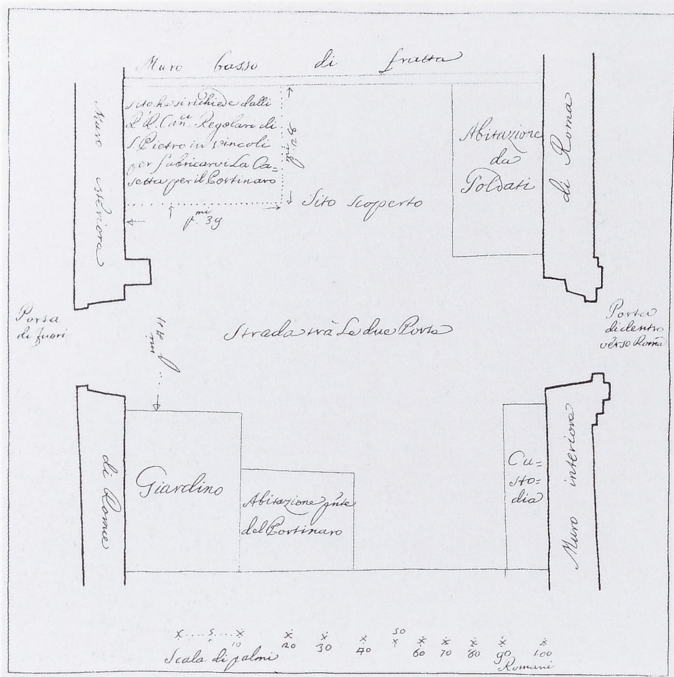 Muro basso di fratta
Muro esteriore
sito che si richiede dalli
RR. Can.ci Regolari di
S. Pietro in vincoli
per fabricarvi La Ca=
setta per il Portinaro
p.mi 39
Sito scoperto
Abitazione
da
Soldati
di Roma
Porta
di fuori
Strada trà Le due Porte
Porta
di dentro
verso Roma
di Roma
Giardino
Abitazione
del Portinaro
Cu=
sto=
dia
Muro interiore
5 10 20 30 40 50 60 70 80 90 100
Scala di palmi Romani